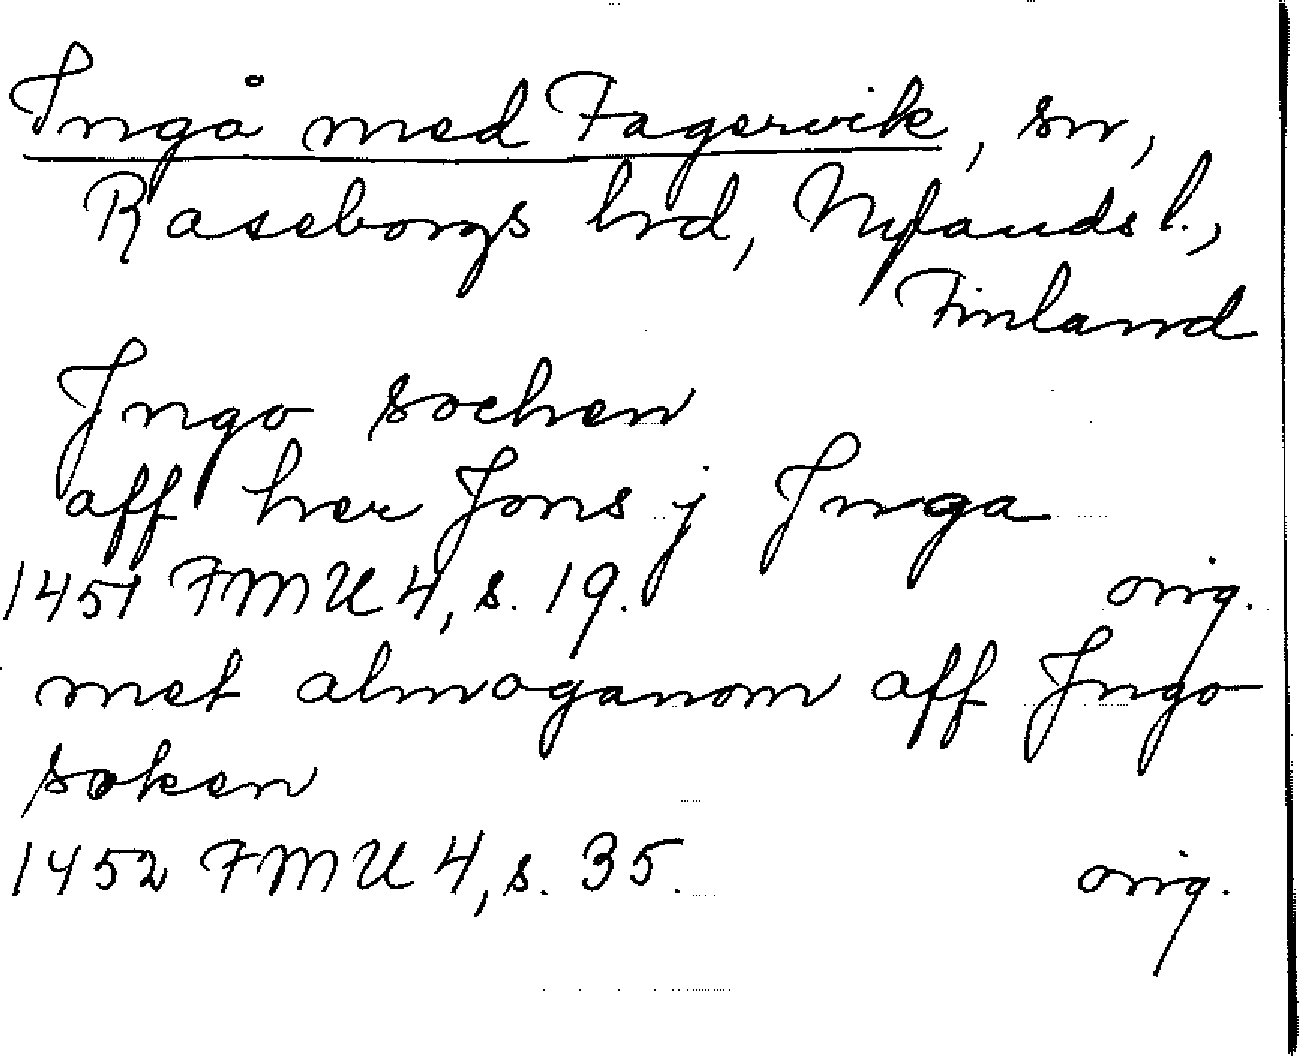 Ingå med Fagervik, sn,
Raseborgs hrd, Nylands l.,
Finland
Jngo sochen
aff her Jons j Jnga
1451 FMU 4, s. 19. orig.
met almoganom aff Jngo
soken
1452 FMU 4, s. 35. orig.